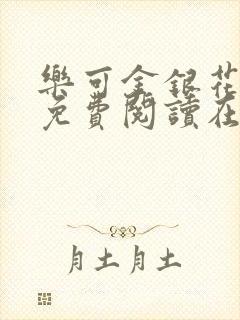 樂可金銀花
免費閱讀在
月土月土